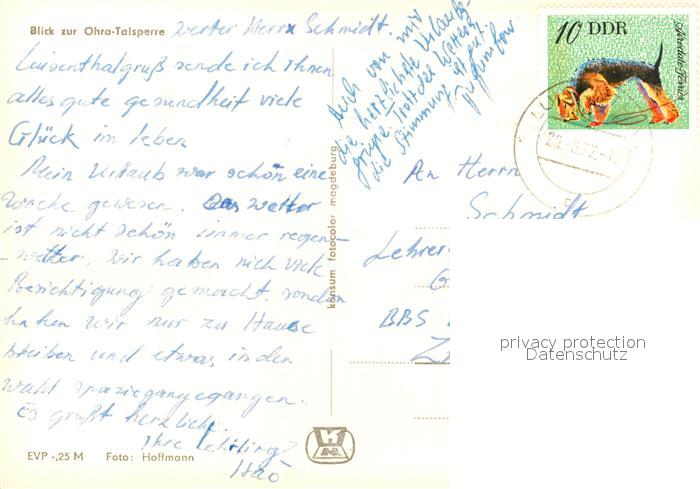 Blick zur Ohra-Talsperre
Werter Herrx Schmidt.
Luisenthalgruß sende ich Ihnen
alles gute gesundheit viele
Glück im leben
Mein Urlaub war schön eine
Woche gewesen. Das wetter
ist nicht schön immer regen-
-wetter. Wir haben nich viele
Besichtigung gemacht. sondern
haben wir nur zu Hause
bleiben und etwas in den
wald spaziegangegangen.
Es grüßt herzlich.
Ihre Lehrling
Hao
Auch von mir
die herzlichste Urlaubs-
grüße. Trotz des Wetters
die Stimmung ist gut.
konsum fotocolor magdeburg
10 DDR
Airedale-Terrier
An Herrn
Schmidt
Lehrer
BBS
privacy protection
Datenschutz
EVP -,25 M Foto: Hoffmann